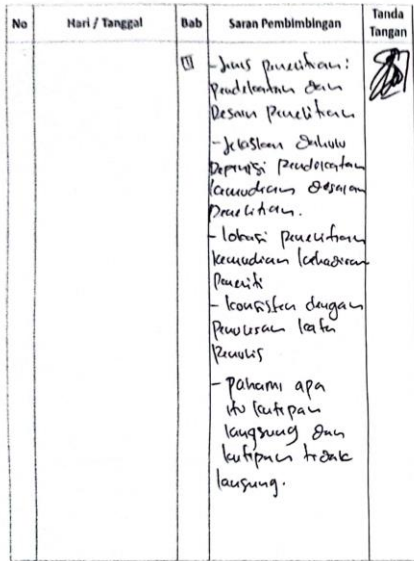 No Hari / Tanggal Bab Saran Pembimbingan Tanda Tangan
- Jenis penelitian:
Pendekatan dan
Desain Penelitian
- Jelaskan dahulu
Depenisi pendekatan
kemudian desain
Penelitian.
- lokasi penelitian
kemudian kehadiran
Peneliti
- konsisten dengan
Penulisan kata
Penulis
- pahami apa
itu kutipan
langsung dan
kutipan tidak
langsung.